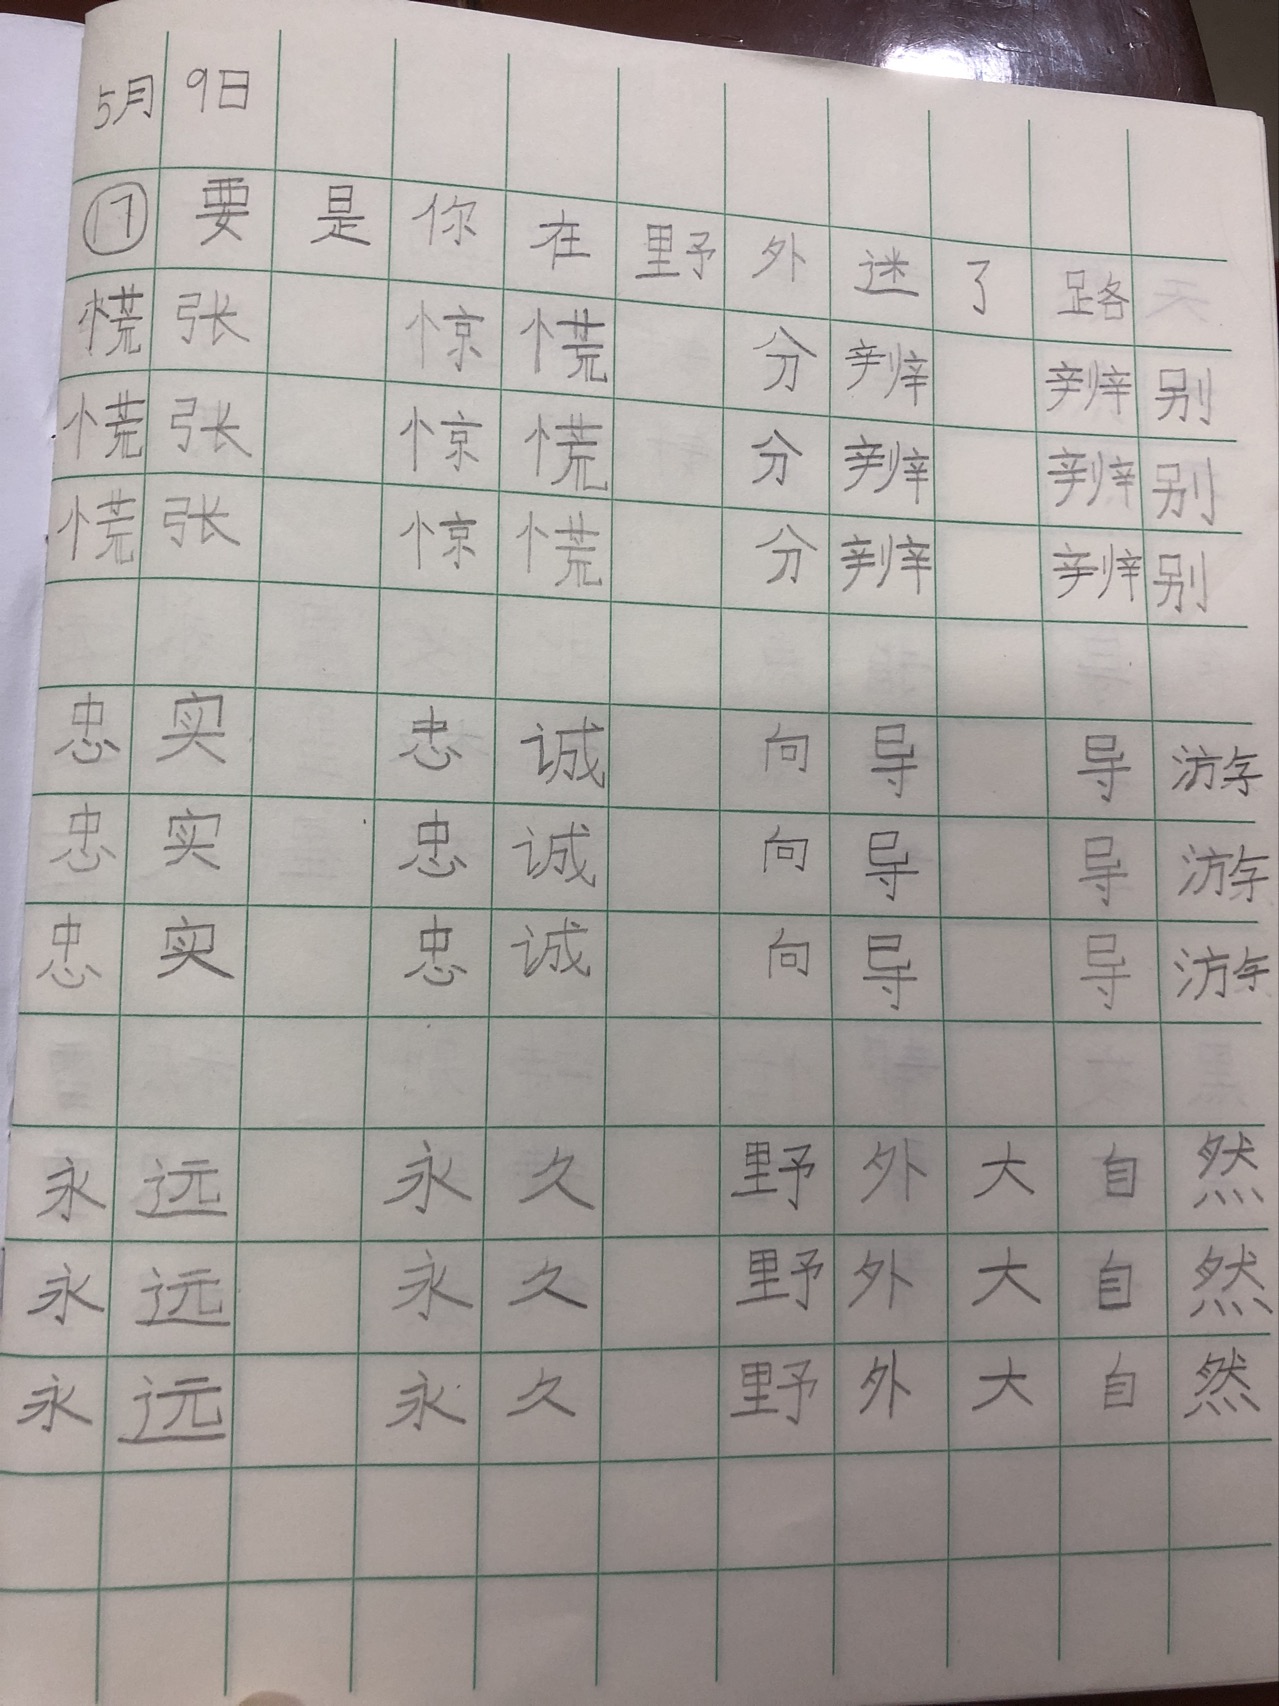 5月9日
⑰要是你在野外迷了路
慌张 惊慌 分辨 辨别
慌张 惊慌 分辨 辨别
慌张 惊慌 分辨 辨别
忠实 忠诚 向导 导游
忠实 忠诚 向导 导游
忠实 忠诚 向导 导游
永远 永久 野外大自然
永远 永久 野外大自然
永远 永久 野外大自然